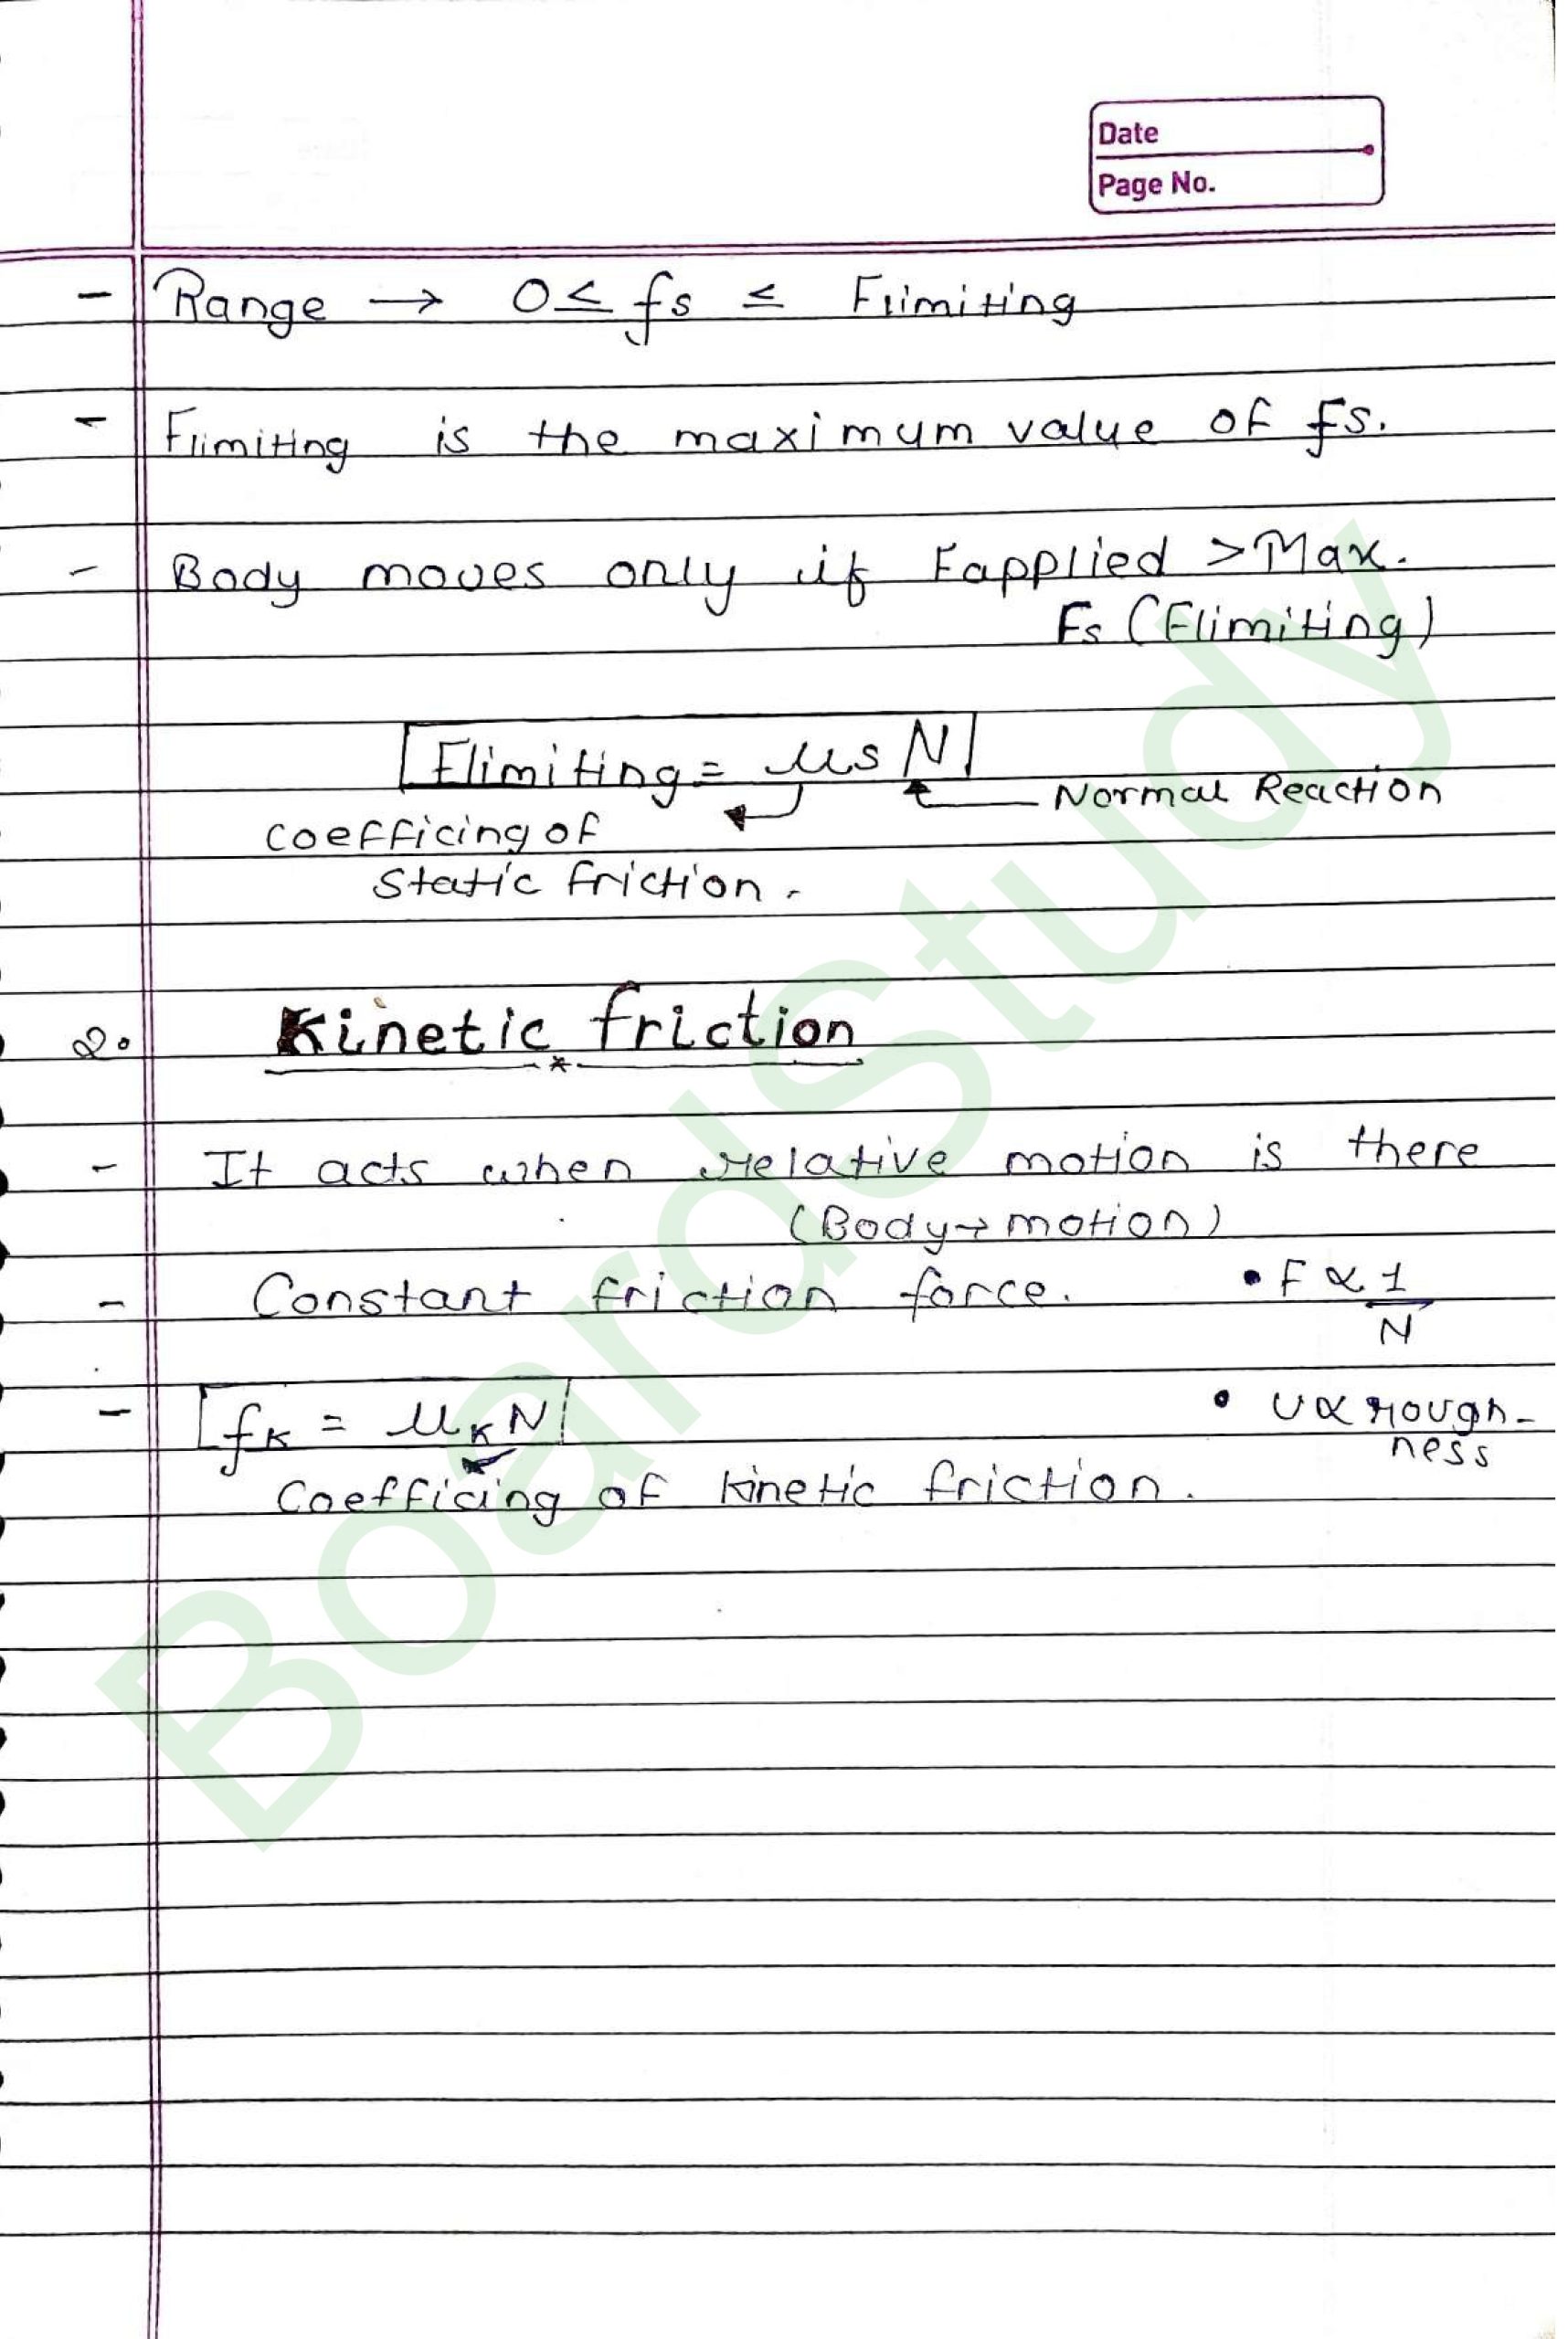 Date
Page No.
- Range → 0 ≤ fs ≤ Flimiting
- Flimiting is the maximum value of fs.
- Body moves only if Fapplied > Max.
Fs (Flimiting)
Flimiting = μs N
Normal Reaction
coefficing of
static friction.
2. Kinetic friction
- It acts when relative motion is there
(Body → motion)
- Constant friction force. • F ∝ 1/N
- fK = μK N • U ∝ rough-
ness
Coefficing of kinetic friction.
BoardStudy